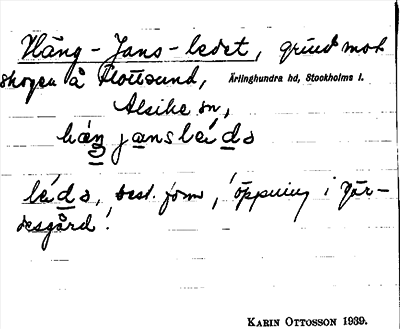 Häng-Jans-ledet, grind mot
skogen å Flottsund, Ärlinghundra hd, Stockholms l.
Alsike sn,
häŋ jansleds
leds, best. form, 'öppning i gär-
desgård'.
KARIN OTTOSSON 1939.